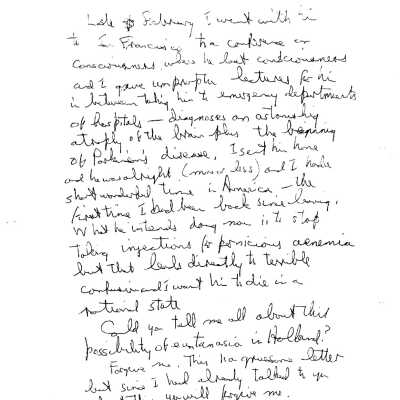 Late February I went with
to San Francisco to a conference on
consciousness where he lost consciousness
and I gave impromptu lectures for him
in between taking him to emergency departments
of hospitals — diagnoses an astonishing
atrophy of the brain plus the beginning
of Parkinson's disease. I sent him home
and he was alright (more or less) and I had a
short wonderful time in America — the
first time I had been back since leaving.
What he intends doing now is to stop
taking injections for pernicious anaemia
but that leads directly to terrible
confusion and I want him to die in a
rational state
Could you tell me all about this
possibility of euthanasia in Holland?
Forgive me. This is a gruesome letter
but since I had already talked to you
you will forgive me.